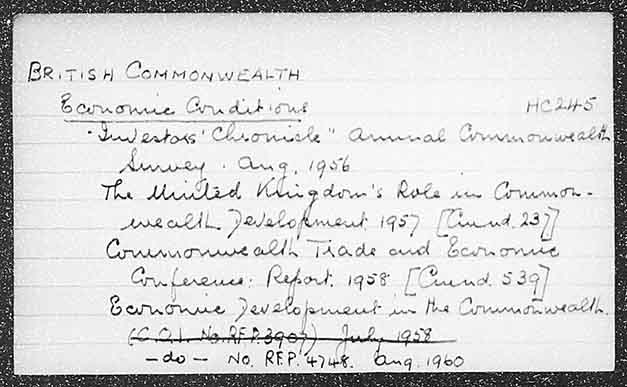 BRITISH COMMONWEALTH
Economic Conditions HC245
"Investors' Chronicle" Annual Commonwealth
Survey. Aug. 1956
The United Kingdom's Role in Common-
wealth Development 1957 [Cmnd. 237]
Commonwealth Trade and Economic
Conference: Report. 1958 [Cmnd. 539]
Economic Development in the Commonwealth.
(C.O.I. No. RFP. 3907) July 1958
– do – NO. RFP. 4748. Aug. 1960